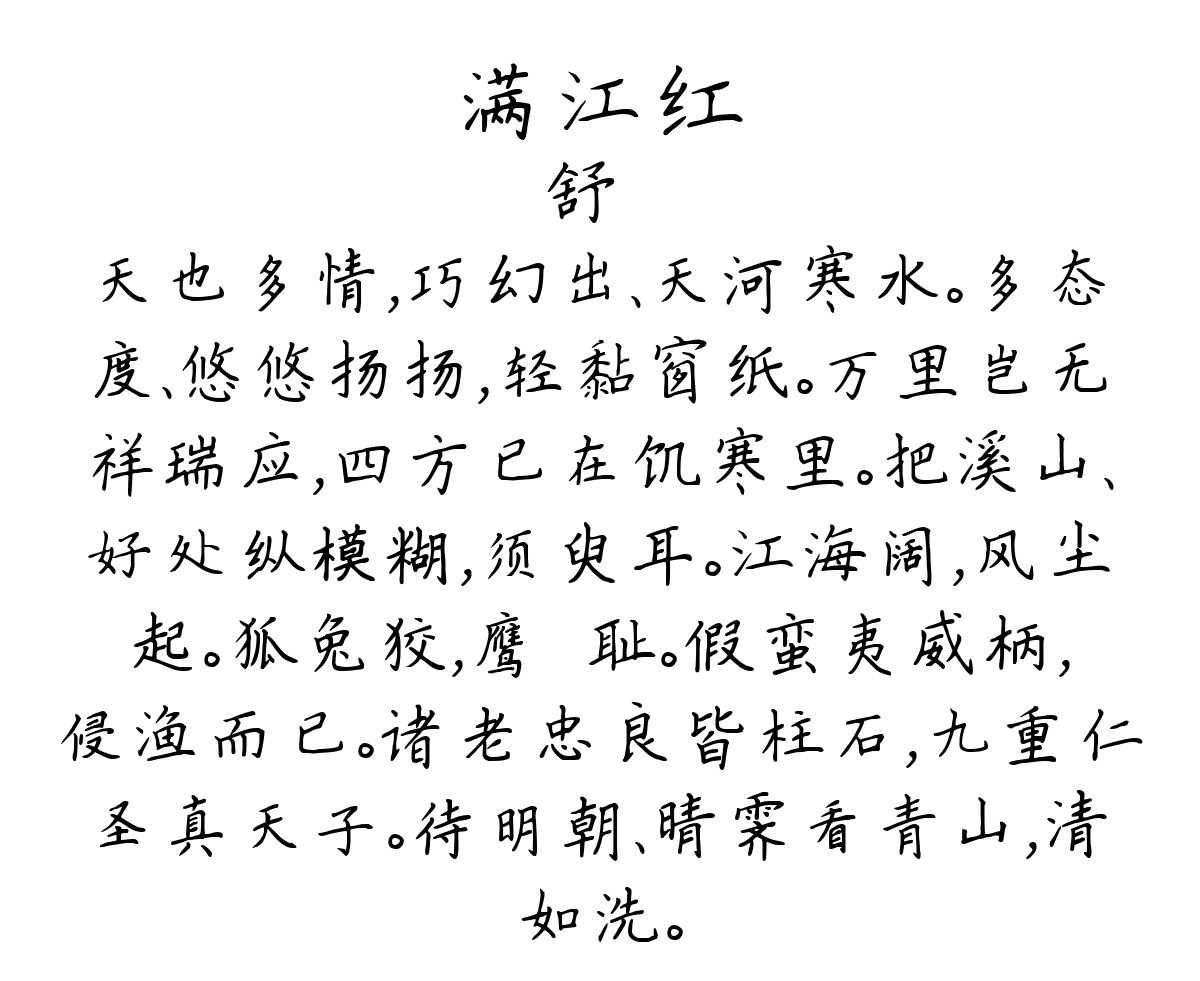 满江红
舒
天也多情,巧幻出、天河寒水。多态
度、悠悠扬扬,轻黏窗纸。万里岂无
祥瑞应,四方已在饥寒里。把溪山、
好处纵模糊,须臾耳。江海阔,风尘
起。狐兔狡,鹰 耻。假蛮夷威柄,
侵渔而已。诸老忠良皆柱石,九重仁
圣真天子。待明朝、晴霁看青山,清
如洗。